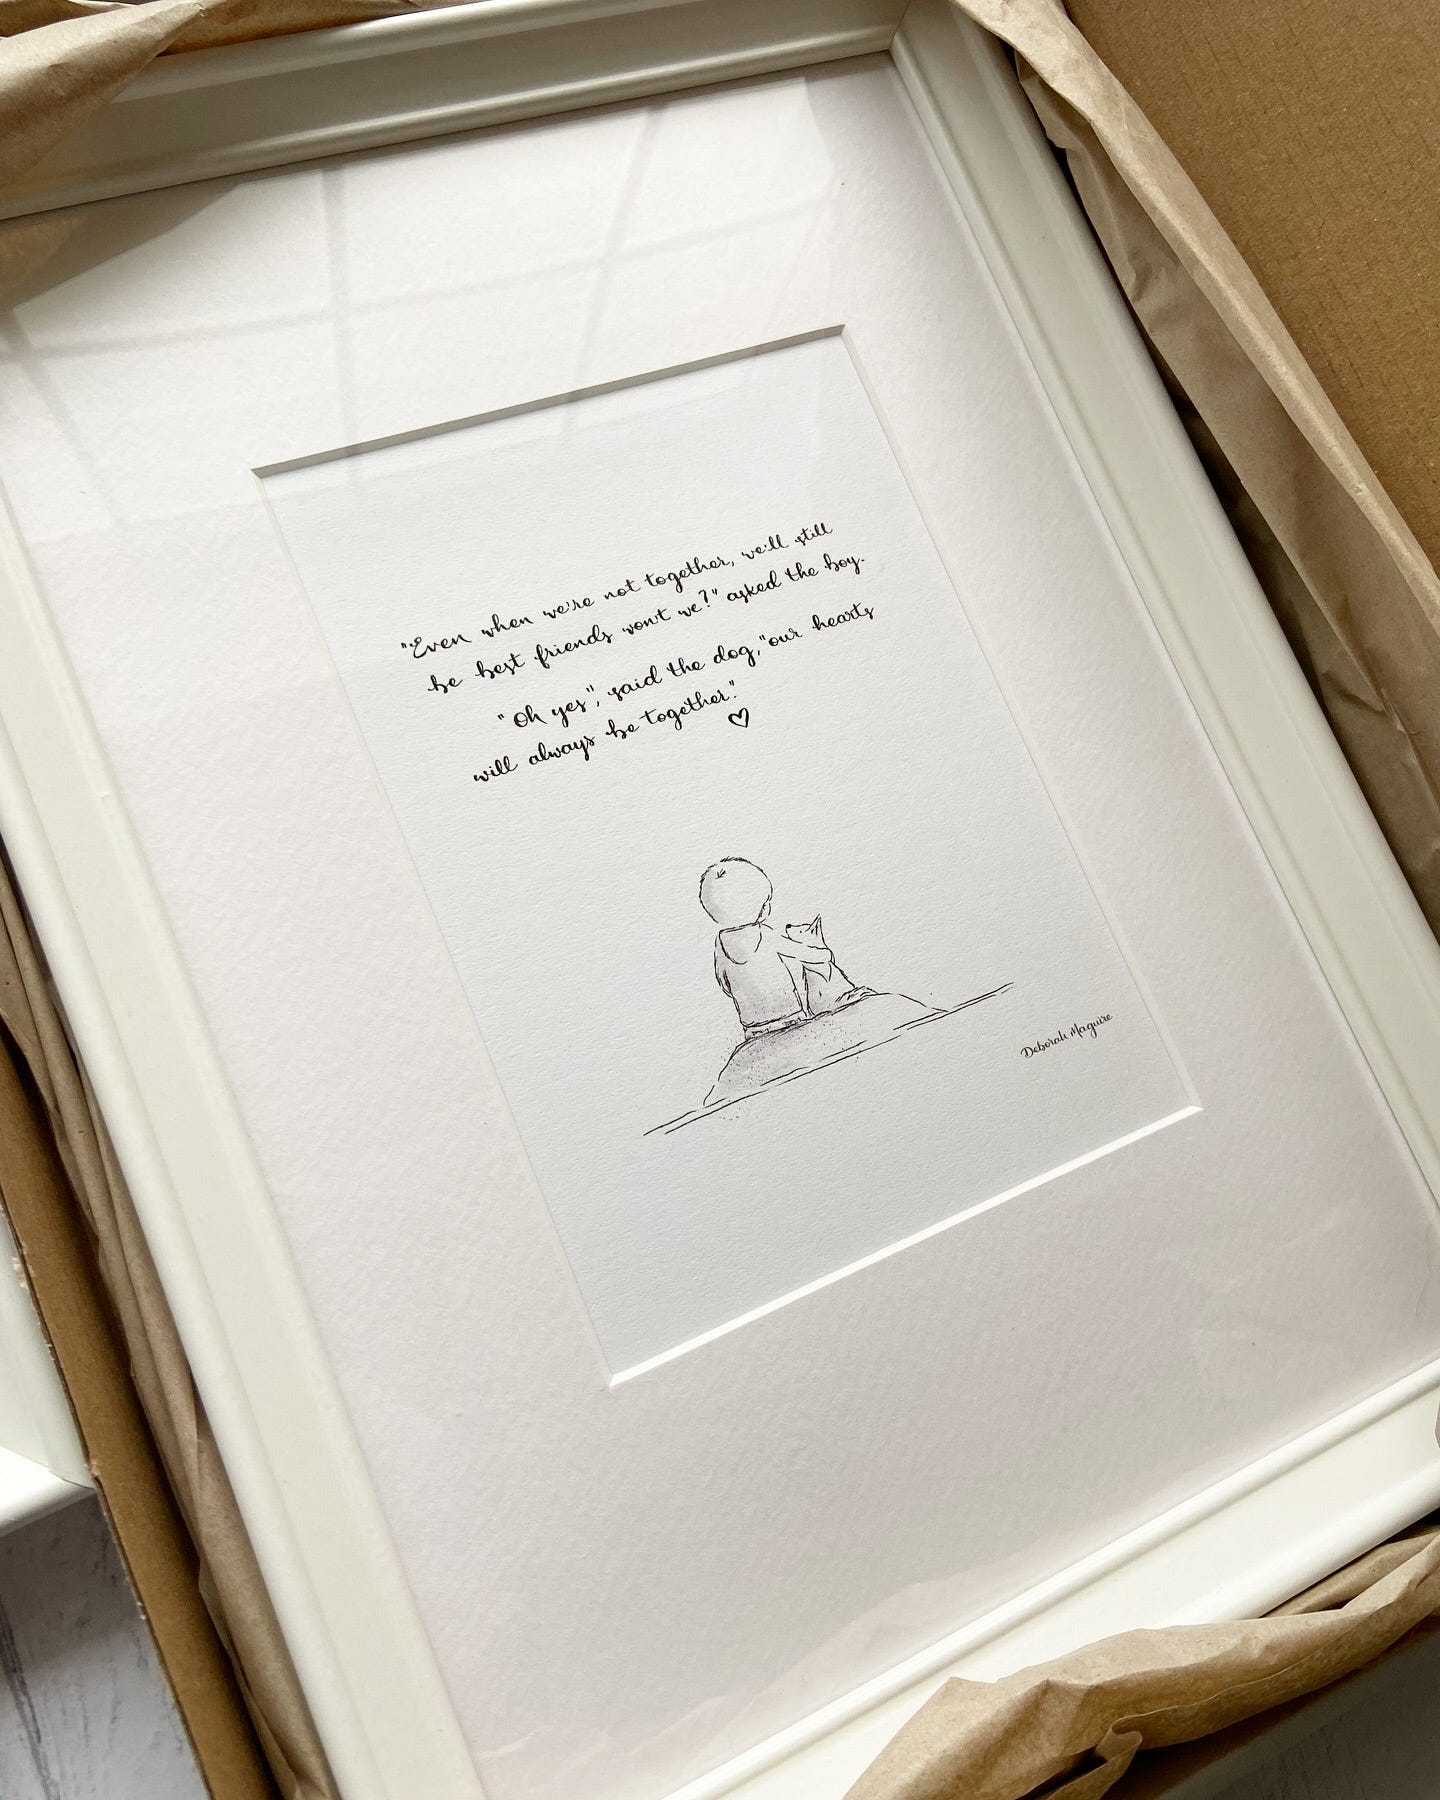 "Even when we're not together, we'll still
be best friends won't we?" asked the boy.
"Oh yes", said the dog, "our hearts
will always be together".
Deborah Maguire